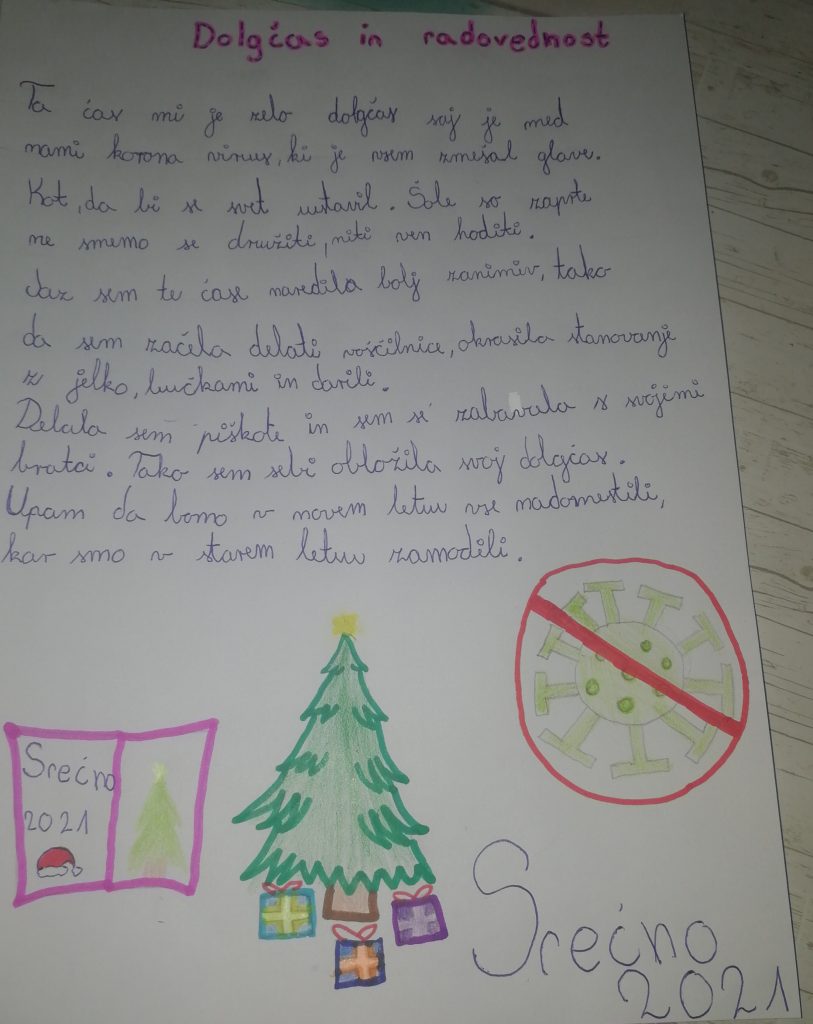 Dolgćas in radovednost
Ta ćas mi je zelo dolgćas saj je med
nami korona virus, ki je vsem zmešal glave.
Kot, da bi se svet ustavil. Šole so zaprte
ne smemo se družiti, niti ven hoditi.
Jaz sem te ćase naredila bolj zanimiv, tako
da sem začela delati voščilnice, okrasila stanovanje
z jelko, lučkami in darili.
Delala sem piškote in sem se zabavala s svojimi
bratci. Tako sem sebi obložila svoj dolgćas.
Upam da bomo v novem letuu vse nadomestili,
kar smo v starem letuu zamodili.
Srećno
2021
Srećno
2021